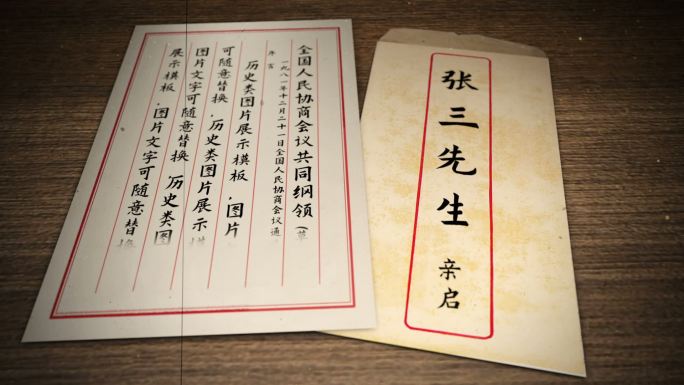 全国人民协商会议共同纲领(草
一九八一年十二月二十一日全国人民协商会议通
序言
历史类图片展示模板,图片
可随意替换,历史类图片展示模
图片文字可随意替换,历史类图
展示模板,图片文字可随意替换
张三先生
亲启